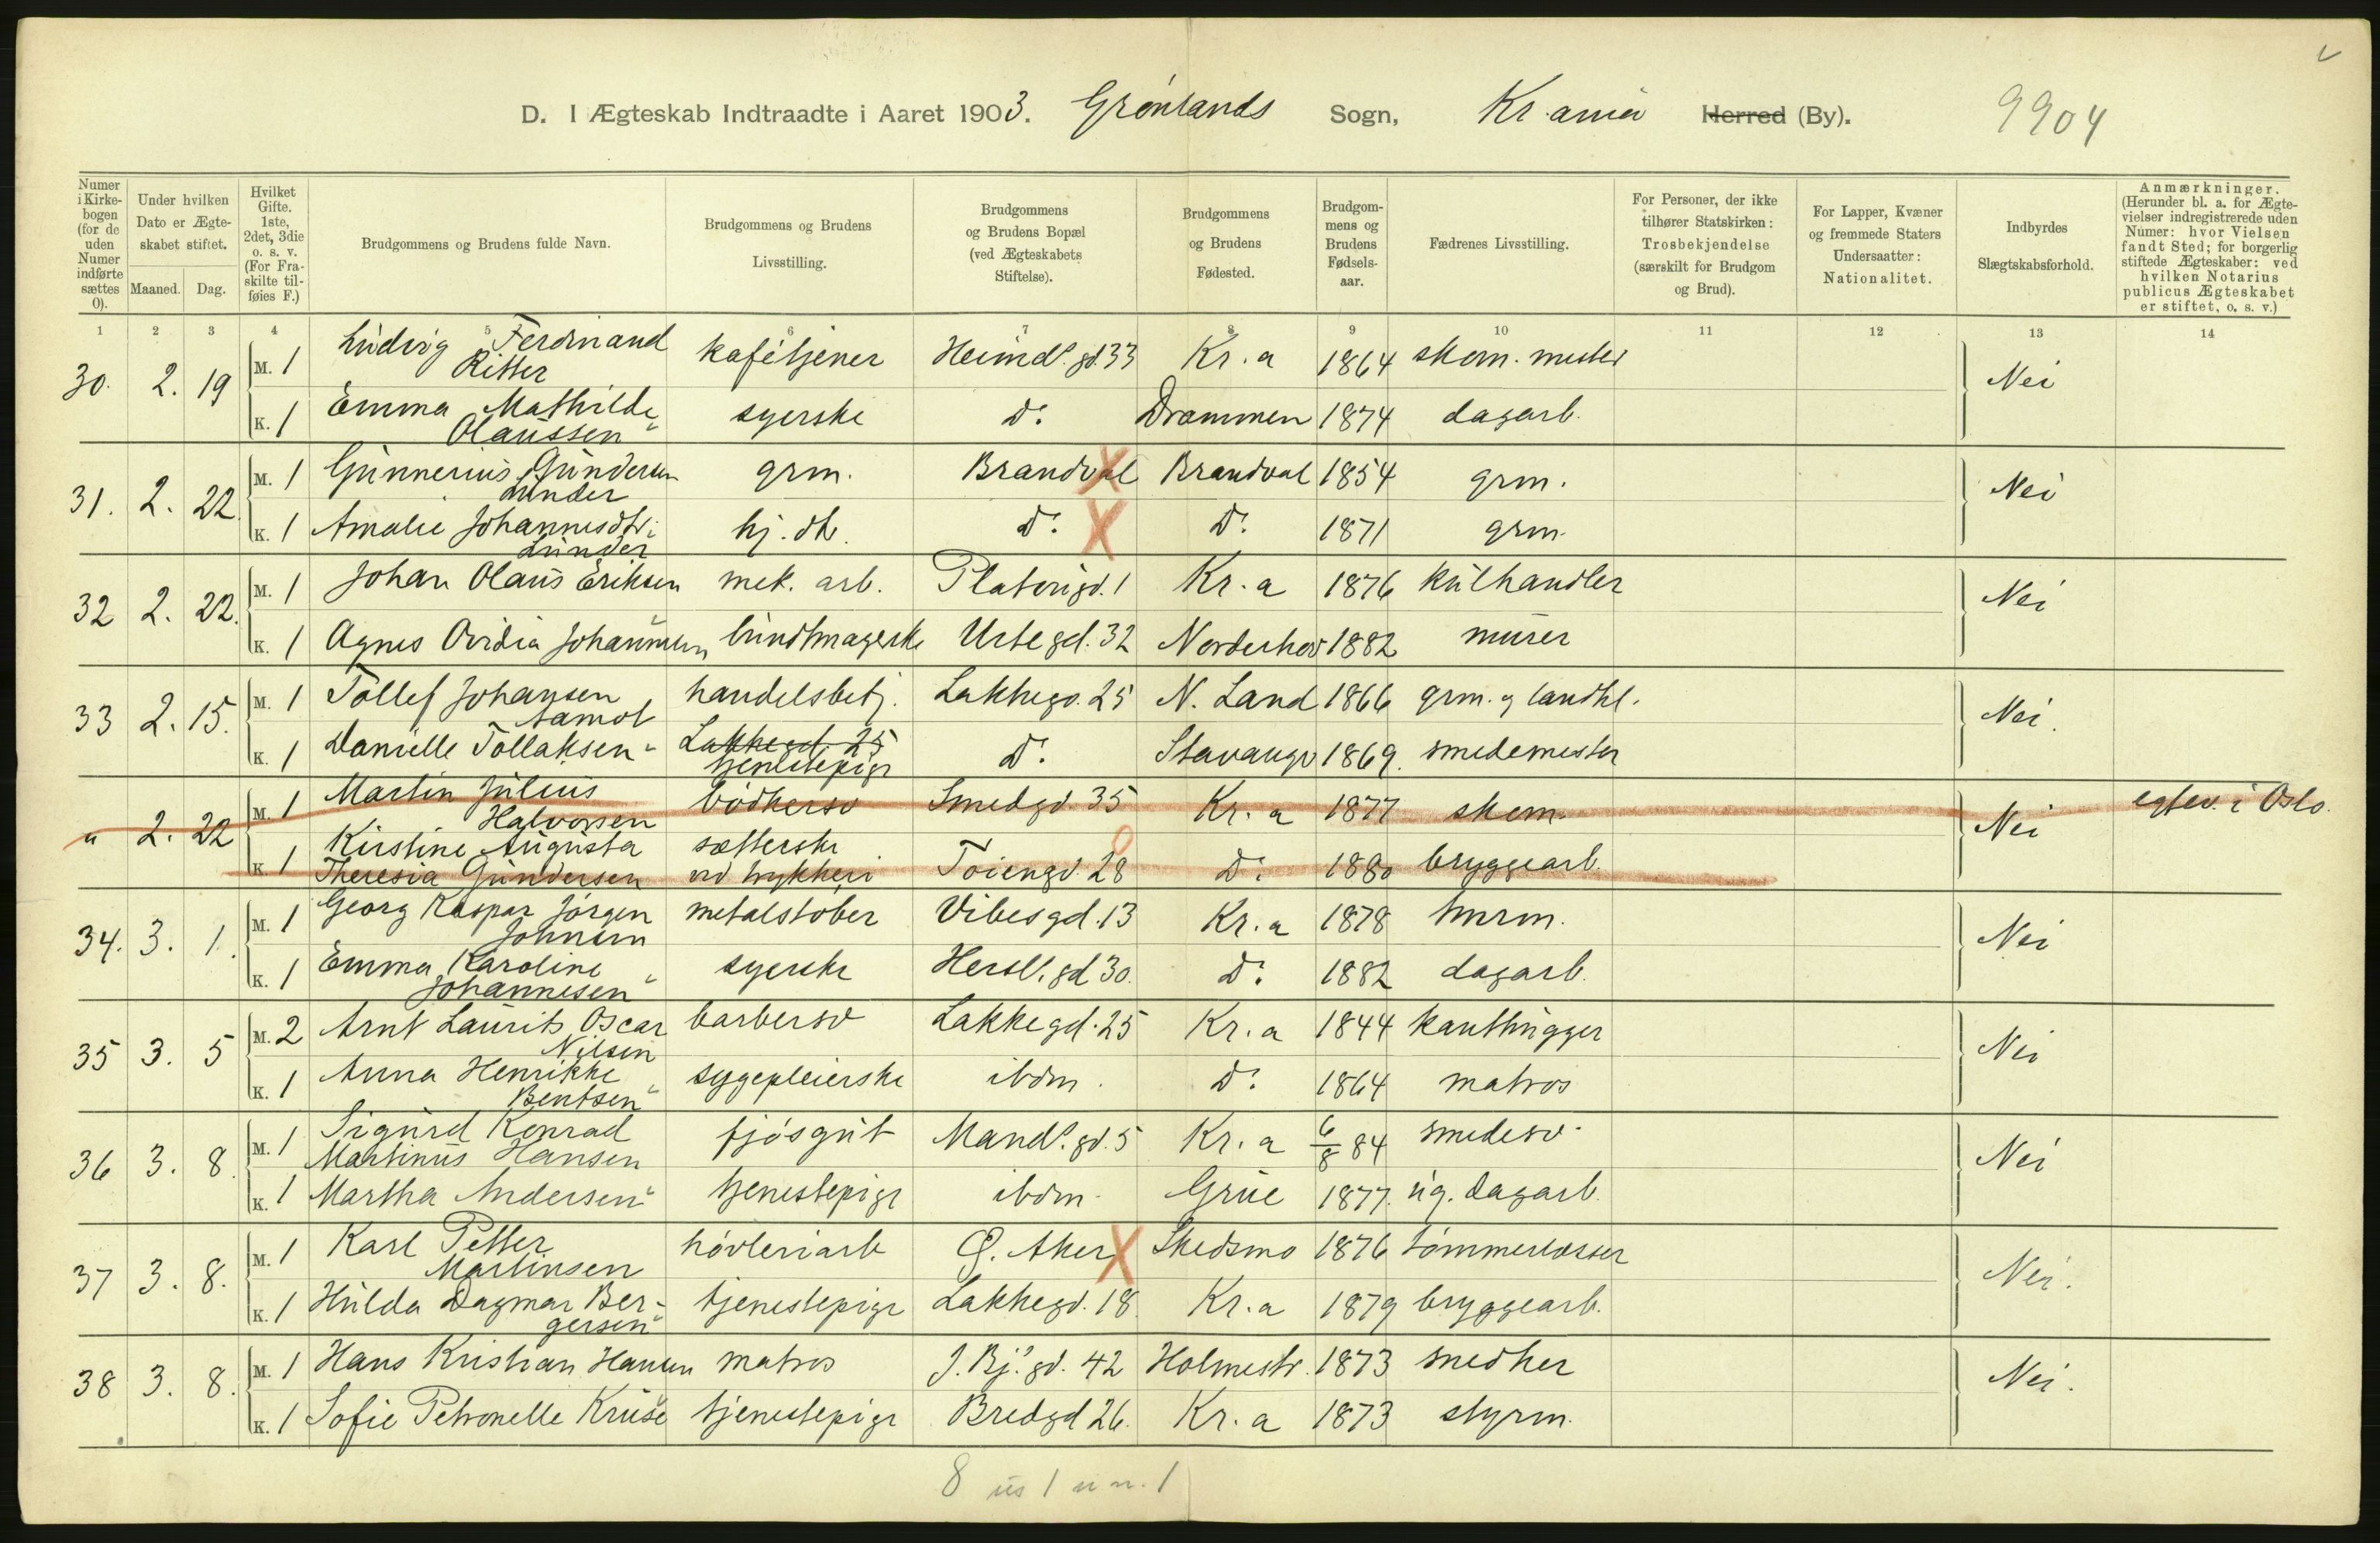 D. I Ægteskab Indtraadte i Aaret 1903. Grønlands Sogn, Kr.ania Herred (By). 9904
Numer i Kirkebogen (for de uden Numer indførte sættes 0).
Under hvilken Dato er Ægteskabet stiftet.
Maaned. Dag.
Hvilket Gifte. 1ste, 2det, 3die o. s. v. (For Fraskilte tilføies F.)
Brudgommens og Brudens fulde Navn.
Brudgommens og Brudens Livsstilling.
Brudgommens og Brudens Bopæl (ved Ægteskabets Stiftelse).
Brudgommens og Brudens Fødested.
Brudgommens og Brudens Fødselsaar.
Fædrenes Livsstilling.
For Personer, der ikke tilhører Statskirken: Trosbekjendelse (særskilt for Brudgom og Brud).
For Lapper, Kvæner og fremmede Staters Undersaatter: Nationalitet.
Indbyrdes Slægtskabsforhold.
Anmærkninger. (Herunder bl. a. for Ægtevielser indregistrerede uden Numer: hvor Vielsen fandt Sted; for borgerlig stiftede Ægteskaber: ved hvilken Notarius publicus Ægteskabet er stiftet, o. s. v.)
1 2 3 4 5 6 7 8 9 10 11 12 13 14
30. 2. 19 M. 1 Ludvig Ferdinand Ritter kafétjener Heimdl. gd. 33 Kr.a 1864 skom. mester Nei
K. 1 Emma Mathilde Olaussen syerske Do. Drammen 1874 dagarb.
31. 2. 22. M. 1 Gunnerius Gundersen Lunder grm. Brandval Brandval 1854 grm. Nei
K. 1 Amalie Johannesdtr. Lunder hj. dtr. Do. Do. 1871 grm.
32 2. 22. M. 1 Johan Olaus Eriksen mek. arb. Platousgd. 1 Kr.a 1876 kulhandler Nei
K. 1 Agnes Ovidia Johannesen bundtmagerske Urtegd. 32 Norderhov 1882 murer
33 2. 15. M. 1 Tollef Johansen Aamot handelsbetj. Lakkegd. 25 N. Land 1866 grm. og landhl. Nei.
K. 1 Danielle Tollaksen Lakkegd. 25 tjenestepige Do. Stavanger 1869. smedemester
" 2. 22 M. 1 Martin Julius Halvorsen bødkersv Smedgd. 35 Kr.a 1877 skom. Nei egtev. i Oslo.
K. 1 Kirstine Augusta Theresia Gundersen sætterske ved trykkeri Tøiengd. 28 Do. 1880 bryggearb.
34. 3. 1. M. 1 Georg Kaspar Jørgen Johnsen metalstøber Vibesgd. 13 Kr.a 1878 tmrm. Nei
K. 1 Emma Karoline Johannesen syerske Hersl. gd 30. Do. 1882 dagarb.
35 3. 5 M. 2 Arnt Laurits Oscar Nilsen barbersv Lakkegd. 25 Kr.a 1844 kanthugger Nei
K. 1 Anna Henrikke Bentsen sygepleierske ibdm. Do. 1864 matros
36 3. 8. M. 1 Sigurd Konrad Martinus Hansen fjøsgut Mandl. gd. 5 Kr.a 6/8 84 smedesv. Nei
K. 1 Martha Andersen tjenestepige ibdm. Grue 1877. ug. dagarb.
37 3. 8. M. 1 Karl Petter Martinsen høvleriarb Ø. Aker Skedsmo 1876 tømmerlosser Nei.
K. 1 Hulda Dagmar Bergersen tjenestepige Lakkegd. 18. Kr.a 1879 bryggearb.
38 3. 8. M. 1 Hans Kristian Hansen matros J. Bj. gd. 42 Holmestr. 1873 snedker Nei.
K. 1 Sofie Petronelle Kruse tjenestepige Bredgd 26. Kr.a 1873 styrm.